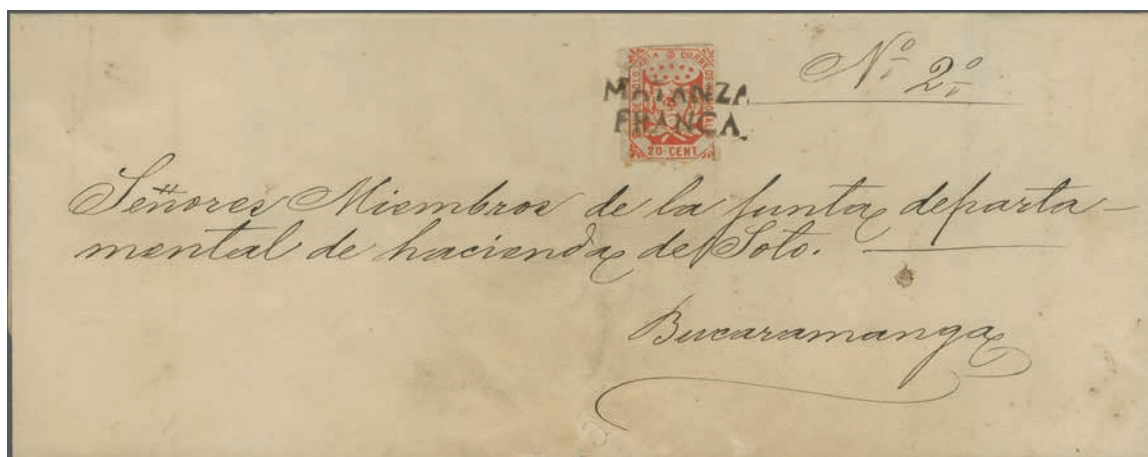 Nº 2º
MATANZA
FRANCA.
CORREOS
20 CENT
Señores Miembros de la Junta departa-
mental de hacienda del Soto.
Bucaramanga